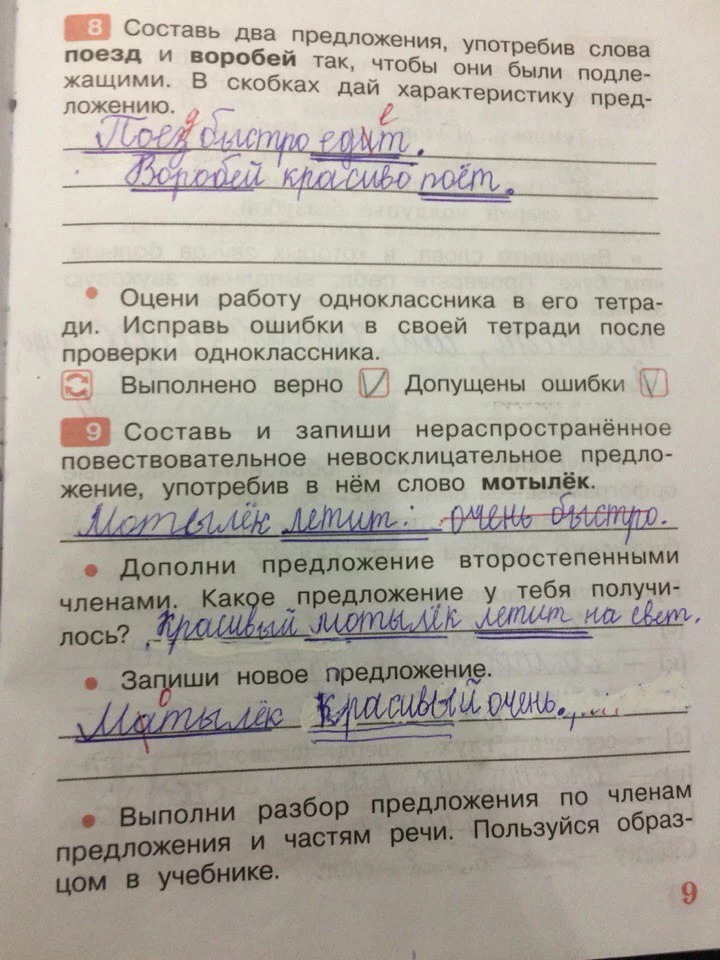 8 Составь два предложения, употребив слова
поезд и воробей так, чтобы они были подле-
жащими. В скобках дай характеристику пред-
ложению.
д е
Поез быстро едит.
Воробей красиво поёт.
• Оцени работу одноклассника в его тетра-
ди. Исправь ошибки в своей тетради после
проверки одноклассника.
Выполнено верно ✓ Допущены ошибки ✓
9 Составь и запиши нераспространённое
повествовательное невосклицательное предло-
жение, употребив в нём слово мотылёк.
Мотылёк летит. очень быстро.
• Дополни предложение второстепенными
членами. Какое предложение у тебя получи-
лось? Красивый мотылёк летит на свет.
• Запиши новое предложение.
о
Матылёк Красивый очень.
• Выполни разбор предложения по членам
предложения и частям речи. Пользуйся образ-
цом в учебнике.
9